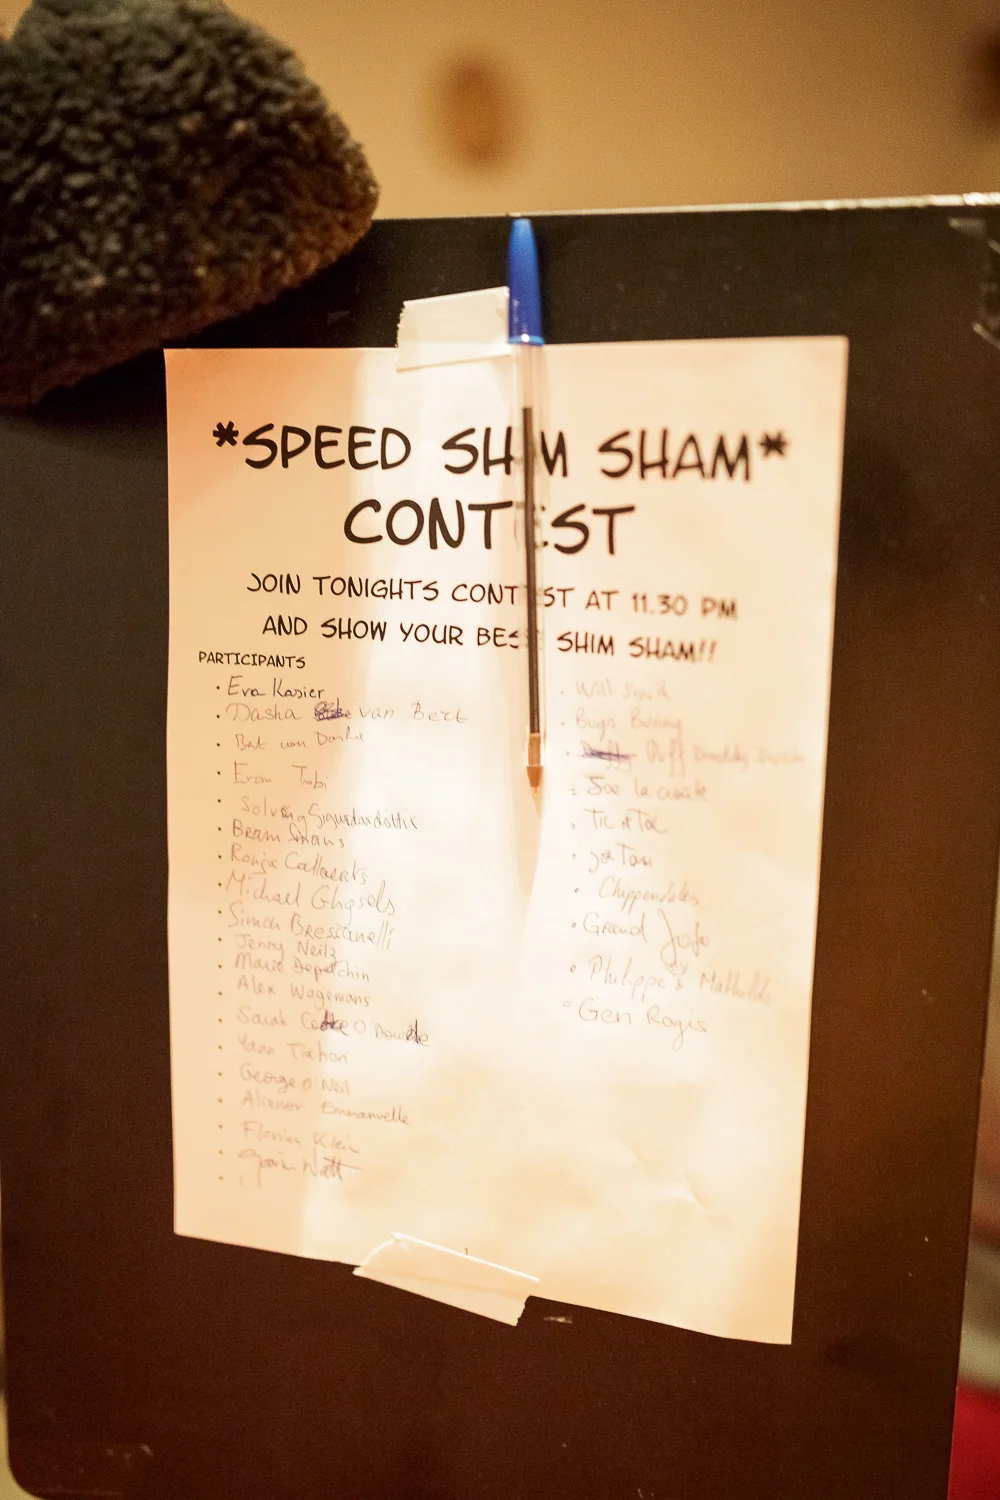 *SPEED SHIM SHAM*
CONTEST
JOIN TONIGHTS CONTEST AT 11.30 PM
AND SHOW YOUR BEST SHIM SHAM!!
PARTICIPANTS
• Eva Kasier
• Dasha van Bert
• Bert van Dasha
•
• Solveig Sigurdardottir
• Bram
• Ronja Collaerts
• Michael Ghysels
• Simon Bressanelli
• Jenny Neilz
• Marie Depatchin
• Alex Wagemans
• Sarah O'Dowde
• Yann Tixhon
• George O Neil
• Alienor Emmanuelle
• Florian Klein
• Watt
• Will Smith
• Bugs Bunny
• Puff Daddy
• Joe la
• Tic & Tac
• Joe Taxi
• Chippendales
• Grand Jojo
• Philippe & Mathilde
• Gen Rogis
1